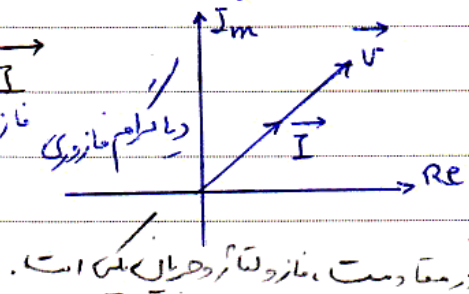 Im
V
I
I
فاز
دیاگرام فازوری
Re
در مقاومت، فاز ولتاژ و جریان یکی است.